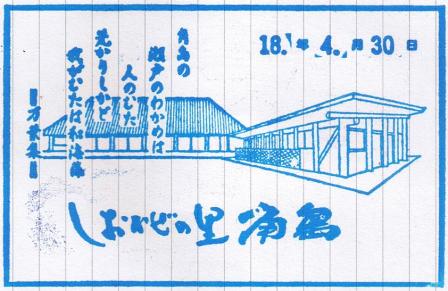 18.年 4.月 30日
角島の
瀬戸のわかめは
人のむた
荒かりしかど
我がむたは和海藻
万葉集
しおかぜの里 角島